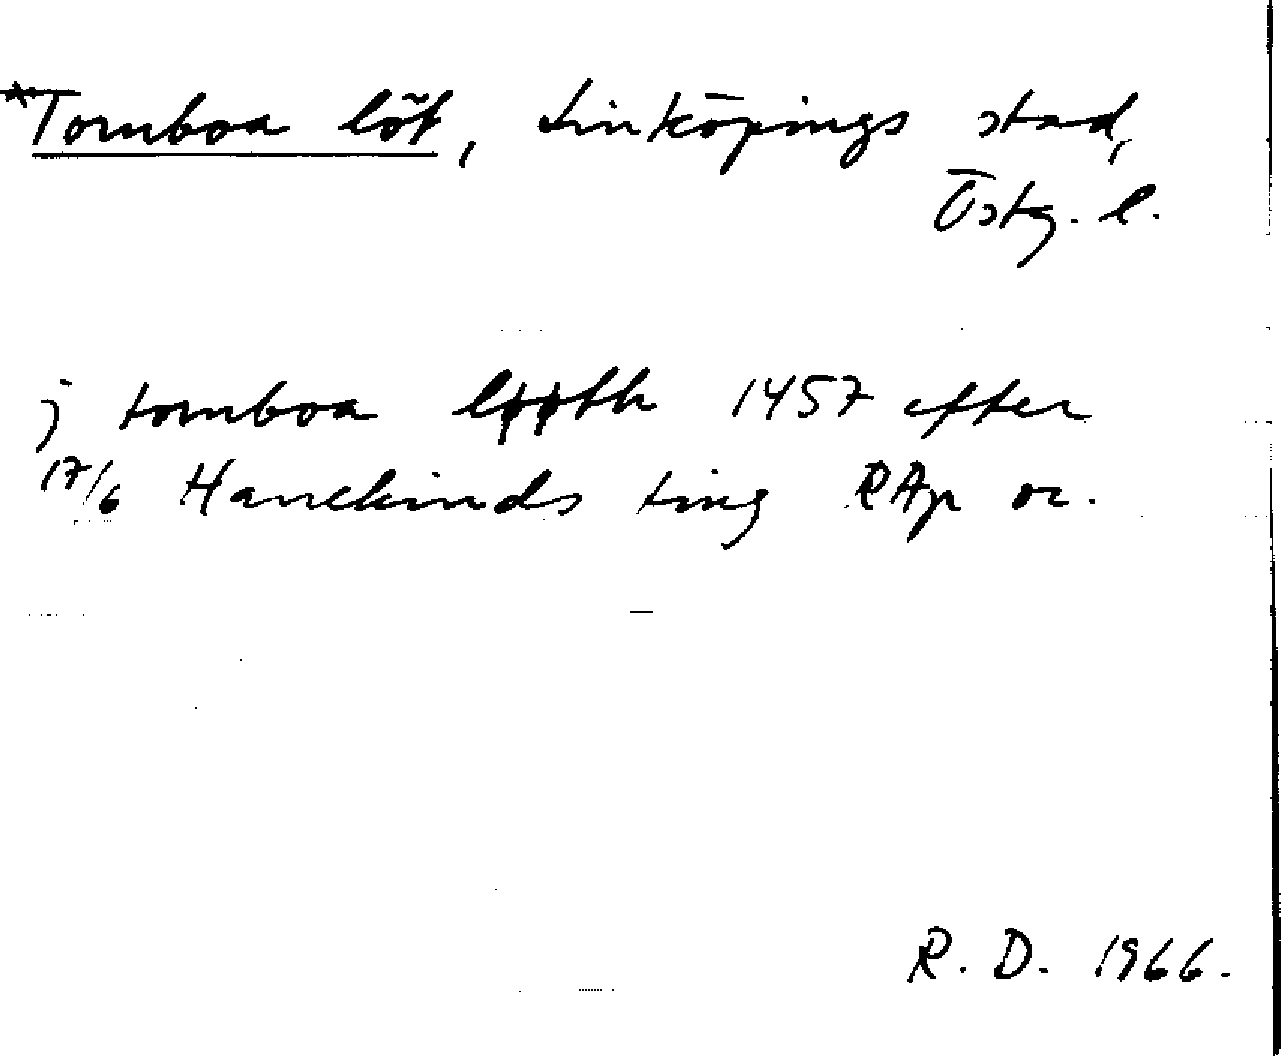 *Tornboa löt, Linköpings stad,
Östg. l.
j tornboa løøth 1457 efter
17/6 Hanekinds ting RAp or.
R. D. 1966.